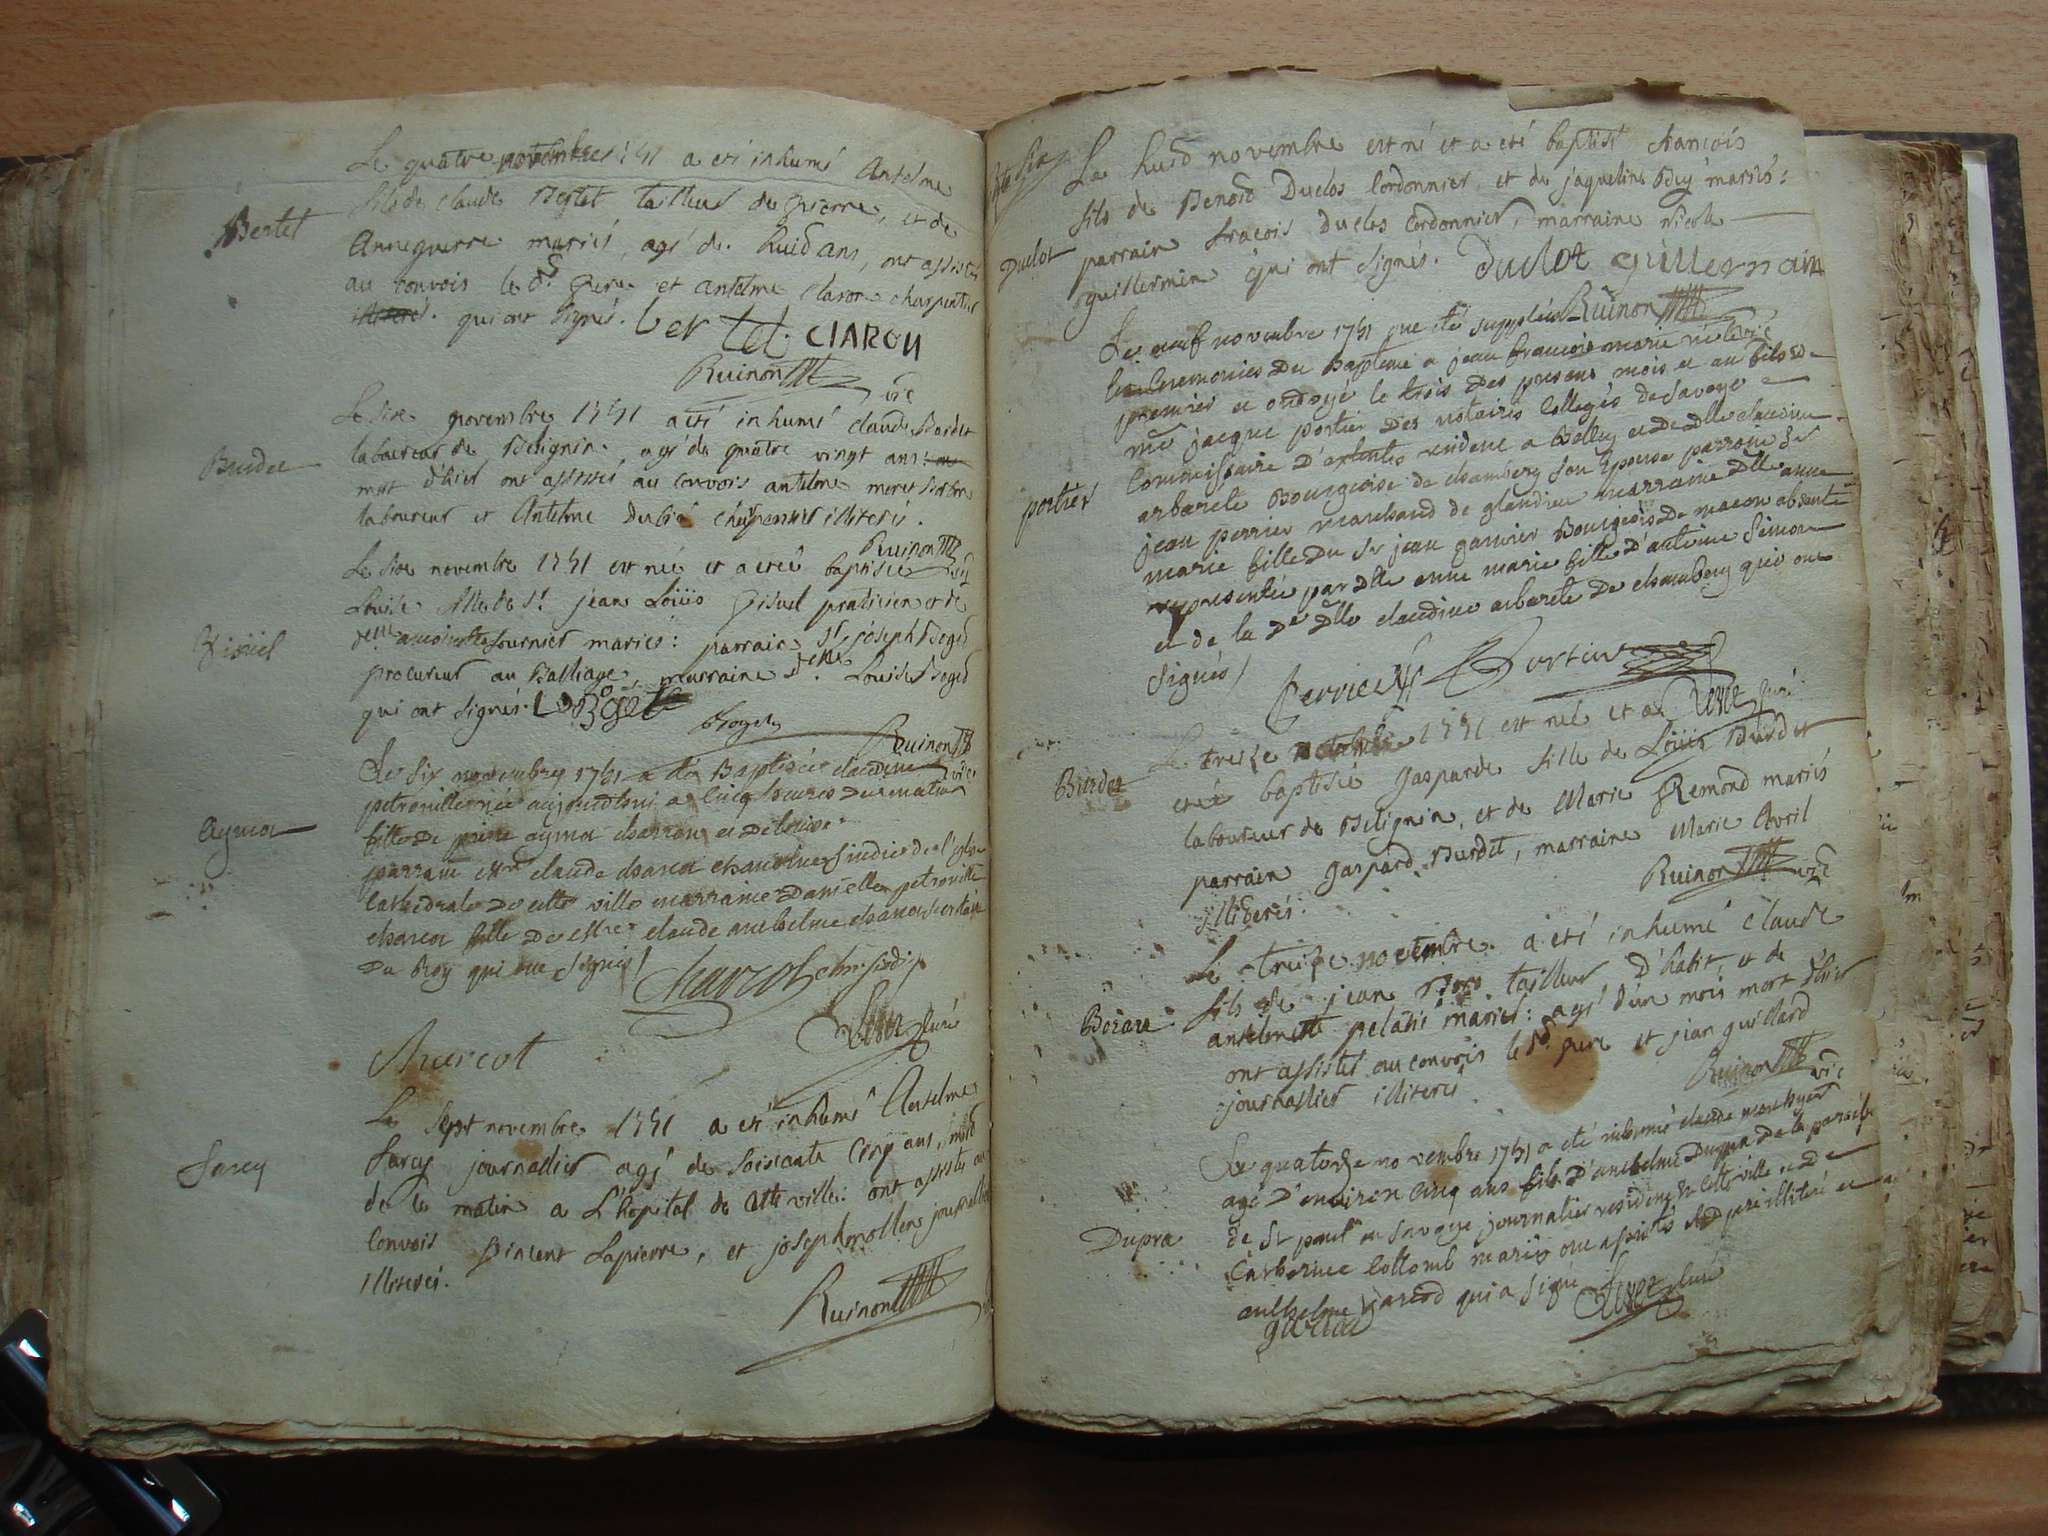 Le quatre novembre 1751 a eté inhumé Antelme
fils de claude Bertet tailleur de pierre, et de
Bertet
Anne guerre mariés, agé de huid ans, ont assisté
au convois le d. pere et antelme claron charpentier
qui ont signés. bertet CIARON
Ruinon vic
Le six novembre 1751 a eté inhumé claude Burdet
Burdet
laboureur de Belignin, agé de quatre vingt ans
mort d'hier ont assistés au convois antelme
laboureur et Antelme charpentier illiterés.
Ruinon vic
Le six novembre 1751 est née et a eteé baptisée
Louise fille de Sr. jean Loüis praticien et de
delle antoinette fournier mariés: parrain Sr. joseph Boged
procureur au Balliage, marraine delle. Louise Boged
qui ont signés. L Boget
Boget
Ruinon vic
Le six novembre 1751 a été Baptisée claudine
petronille née aujourdhui a cinq heures du matin
Aymoz
fille de pierre aymoz charron et de
parrain Mre claude charcot chanoine sindic de l'église
cathedrale de cette ville marraine Damelle petronille
charcot fille de Mre claude anthelme charcot
du Roy qui ont signés
Charcot
curé
Charcot
Le sept novembre 1751 a eté inhumé Antelme
Sarcy
Sarcy journallier agé de soixante cinq ans, mort
de ce matin a L'hopital de cette ville: ont assistés au
convois vincent Lapierre, et joseph mollen journallier
illiterés.
Ruinon
Le huid novembre est né et a eté baptisé francois
fils de Benoid Duclos Cordonnier et de jaqueline Bey mariés:
Duclot
parrain fracois Duclos Cordonnier, marraine nicole
guillermin qui ont signés. Duclot guillermain
Ruinon vic
Le neuf novembre 1751 ont été supplées
les ceremonies du Baptême a jean francois marie né le
premier et ondoyé le trois des presens mois et an fils de
me jacque portier des notaires collegés de Savoye
Commissaire d'extentes residene a Belley et de Dlle claudine
portier
arbarete Bourgeoise de chambery son epouse parrain Sr
jean perrier marchand de glandieu marraine Dlle anne
marie fille du Sr jean garnier Bourgeois de macon absente
representée par Dlle anne marie fille d'antoine Simon
et de la de Dlle claudine arbarete de chambery qui ont
signés
Perrier Portier
curé
Le treize novembre 1751 est née et a
Burdet
eteé baptisée gasparde fille de Loüis Burdet
laboureur de Belignin, et de Marie Remond mariés
parrain gaspard Burdet, marraine Marie Avril
illiterés.
Ruinon vic
Le treize novembre a eté inhumé claude
fils de jean tailleur d'habit, et de
antelmette pelatis mariés: agé d'un mois mort d'hier
ont assistés au convois le d. pere et jean guillard
journallier illiterés
Ruinon vic
Le quatorze novembre 1751 a eté inhumé claude
agé d'environ cinq ans fils d'anthelme Dupra de la paroisse
Dupra
de St paul en Savoye journalier residene en cette ville et de
Catherine Collomb mariés ont assistés led pere illiteré et
anthelme qui a signé curé